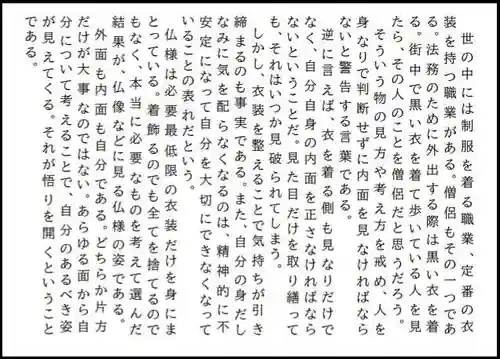 世の中には制服を着る職業、定番の衣
装を持つ職業がある。僧侶もその一つであ
る。法務のために外出する際は黒い衣を着
る。街中で黒い衣を着て歩いている人を見
たら、その人のことを僧侶だと思うだろう。
　そういう物の見方や考え方を戒め、人を
身なりで判断せずに内面を見なければなら
ないと警告する言葉である。
　逆に言えば、衣を着る側も見なりだけで
なく、自分自身の内面を正さなければなら
ないということだ。見た目だけを取り繕って
も、それはいつか見破られてしまう。
　しかし、衣装を整えることで気持ちが引き
締まるのも事実である。また、自分の身だし
なみに気を配らなくなるのは、精神的に不
安定になって自分を大切にできなくなって
いることの表れだという。
　仏様は必要最低限の衣装だけを身にま
とっている。着飾るのでも全てを捨てるので
もなく、本当に必要なものを考えて選んだ
結果が、仏像などに見る仏様の姿である。
　外面も内面も自分である。どちらか片方
だけが大事なのではない。あらゆる面から自
分について考えることで、自分のあるべき姿
が見えてくる。それが悟りを開くということ
である。